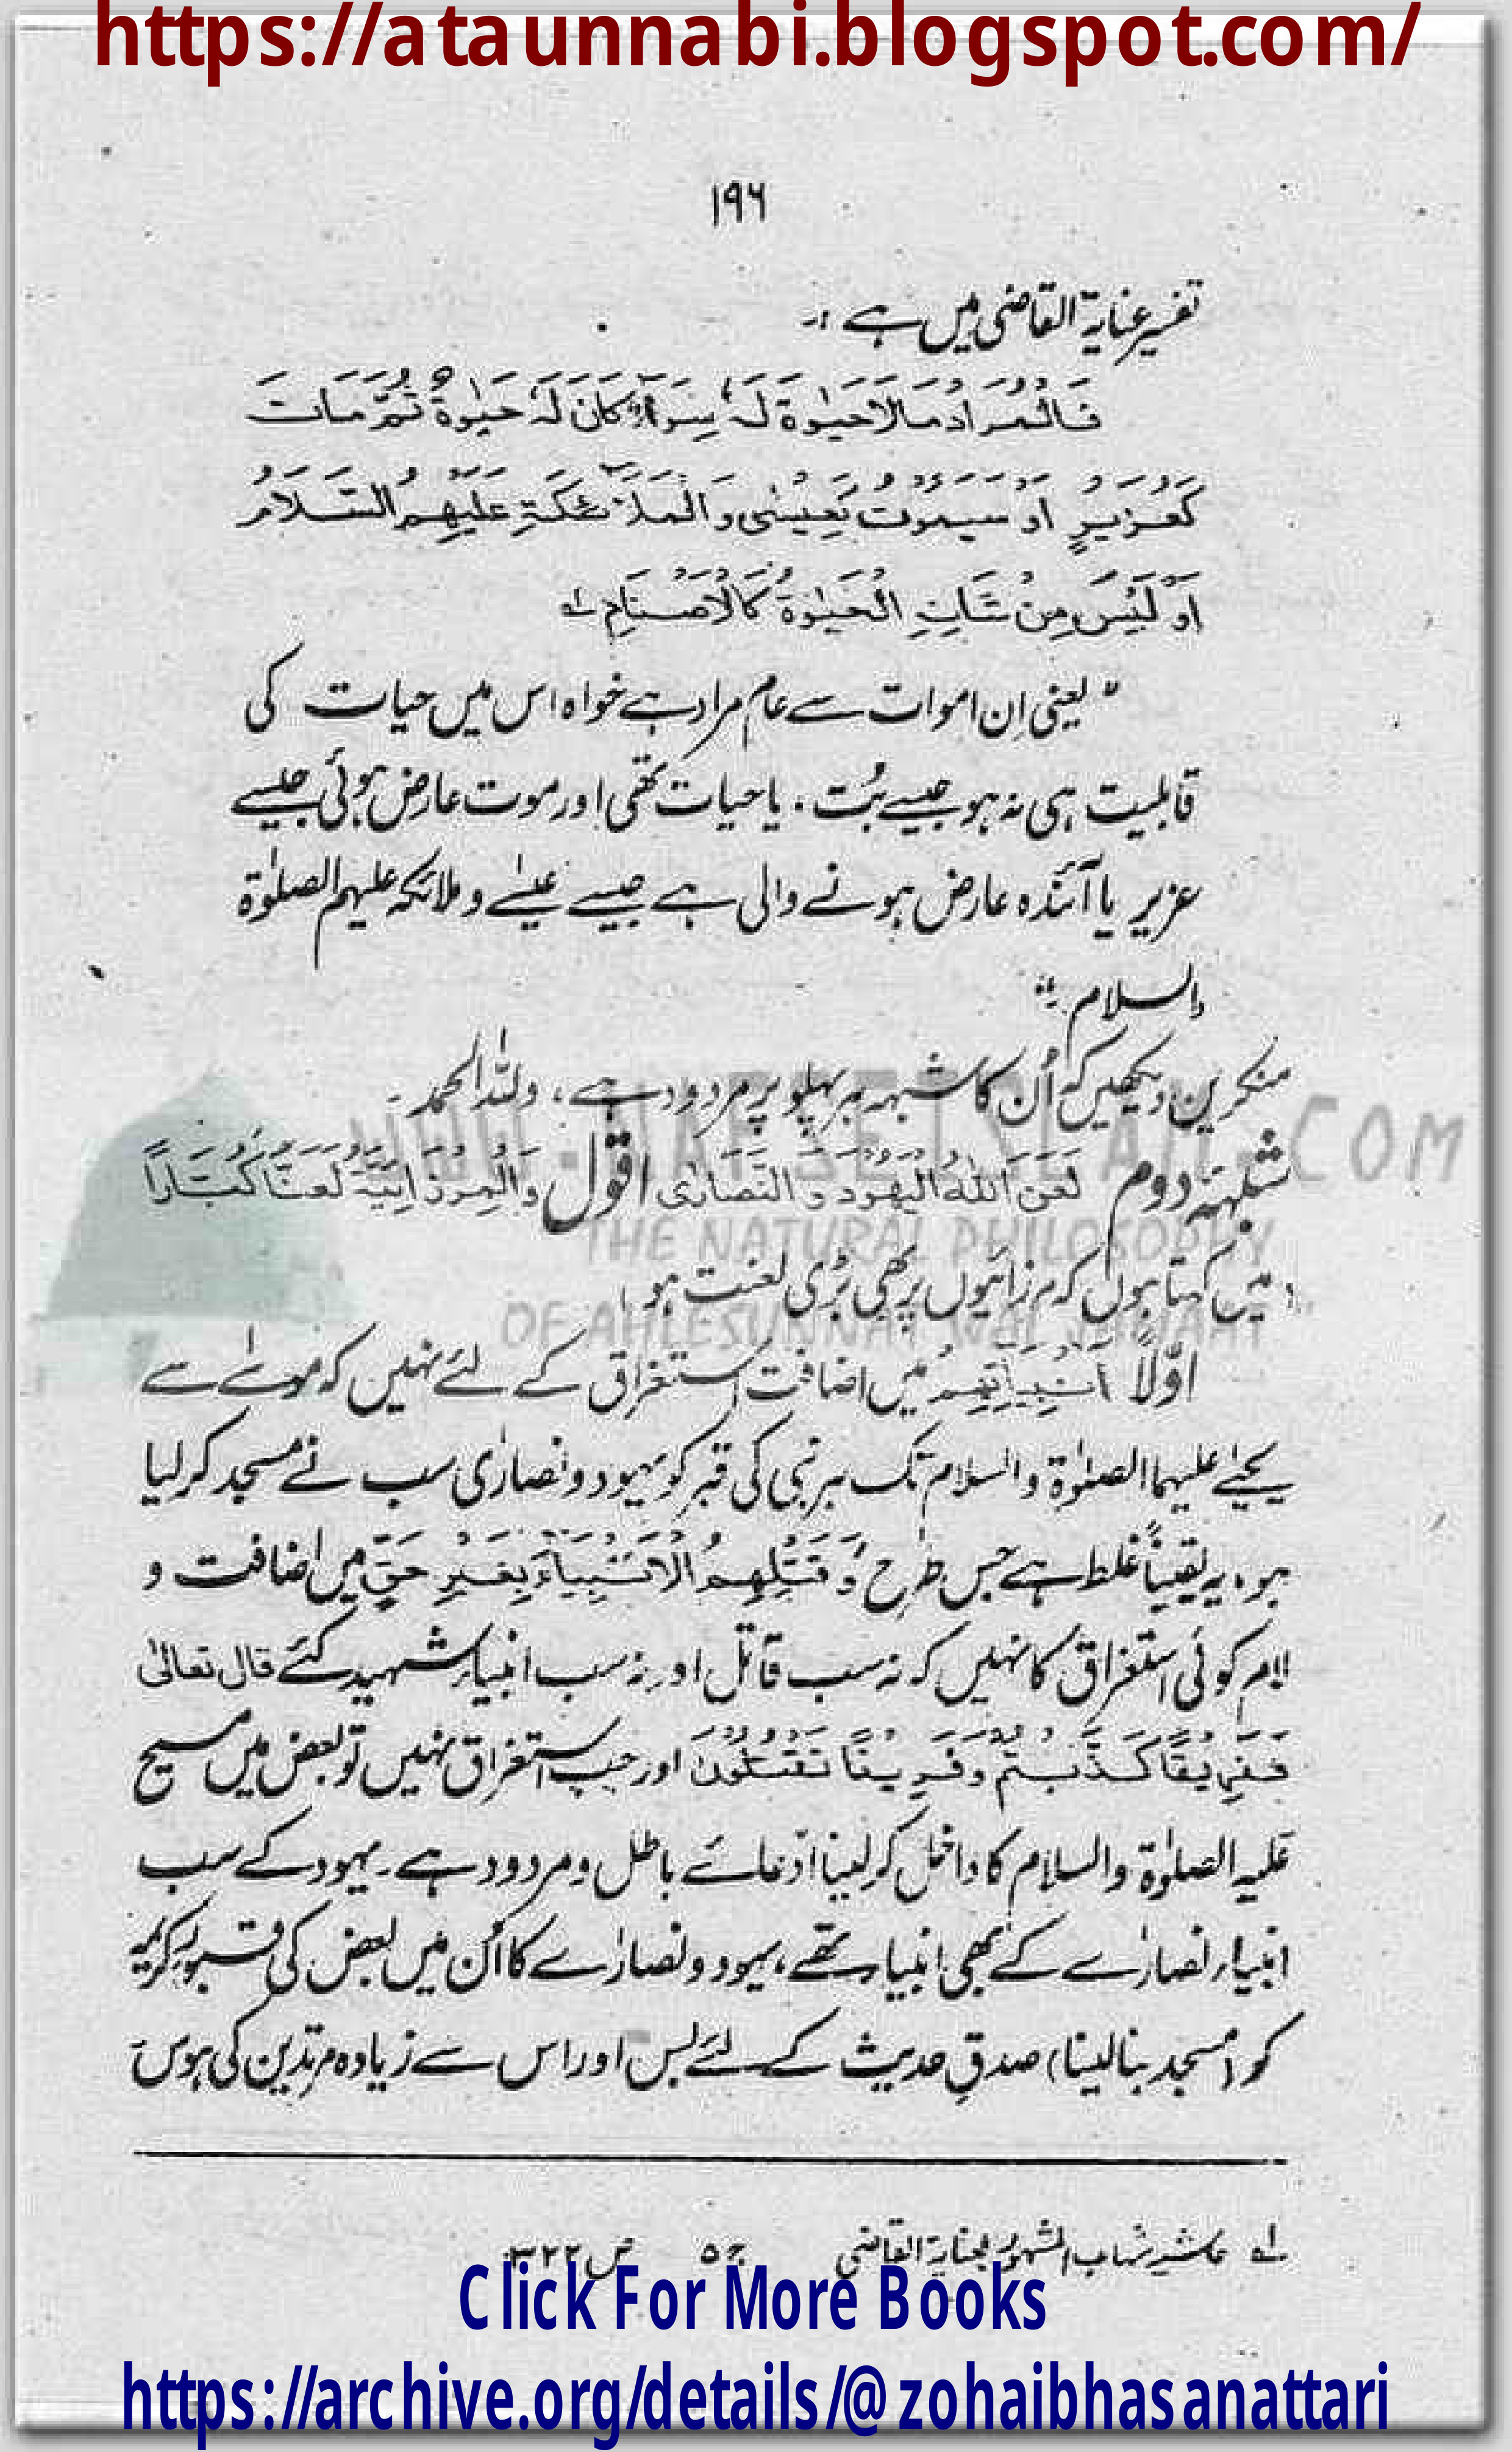 https://ataunnabi.blogspot.com/
۱۹۶
تفسیر عنایۃ القاضی میں ہے :۔
فَالْمُرَادُ مَالَاحَیٰوۃَ لَہٗ سِوَآءٌ کَانَ لَہٗ حَیٰوۃٌ ثُمَّ مَاتَ
کَعُزَیْرٍ اَوْ سَیَمُوْتُ کَعِیْسٰی وَالْمَلَآئِکَۃِ عَلَیْھِمُ السَّلَامُ
اَوْ لَیْسَ مِنْ شَانِہِ الْحَیٰوۃُ کَالْاَصْنَامِ لہ
" یعنی اِن اموات سے عام مراد ہے خواہ اس میں حیات کی
قابلیت ہی نہ ہو جیسے بُت . یا حیات تھی اور موت عارض ہوئی جیسے
عزیر یا آئندہ عارض ہونے والی ہے جیسے عیسٰے و ملائکہ علیہم الصلوٰۃ
والسلام "
منکرین دیکھیں کہ اُن کا شبہہ ہر پہلو پر مردود ہے ، وللّٰہ الحمد ۔
WWW.NAFSEISLAM.COM
شبہۂ دوم لَعَنَ اللّٰہُ الْیَھُوْدَ وَ النَّصَارٰی اقول وَالْمِرْزَائِیَّۃَ لَعْنًا کُبَّارًا
THE NATURAL PHILOSOPHY
( میں کہتا ہوں کہ مرزائیوں پر بھی بڑی لعنت ہو )
OF AHLESUNNAT WAL JAMAAT
اوّلاً اَنْبِیَآئِھِمْ میں اضافت استغراق کے لئے نہیں کہ موسٰے سے
یحیٰے علیہما الصلوٰۃ والسلام تک ہر نبی کی قبر کو یہود و نصارٰی سب نے مسجد کر لیا
ہو، یہ یقیناً غلط ہے جس طرح وَقَتْلِھِمُ الْاَنْبِیَآءَ بِغَیْرِ حَقٍّ میں اضافت و
لام کوئی استغراق کا نہیں کہ نہ سب قاتل اور نہ سب انبیاء شہید کئے قال تعالٰی
فَفَرِیْقًا کَذَّبْتُمْ وَفَرِیْقًا تَقْتُلُوْنَ اور جب استغراق نہیں تو بعض میں مسیح
علیہ الصلوٰۃ والسلام کا داخل کر لینا ادّعائے باطل و مردود ہے ۔ یہود کے سب
انبیاء نصارٰے کے بھی انبیاء تھے ، یہود و نصارٰے کا اُن میں بعض کی قبور کریمہ
کو (مسجد بنا لینا) صدقِ حدیث کے لئے بس اور اس سے زیادہ مرتدین کی ہوس
لہ حاشیہ شہاب المشہور بعنایۃ القاضی ج ۵ ص ۳۲۲
Click For More Books
https://archive.org/details/@zohaibhasanattari